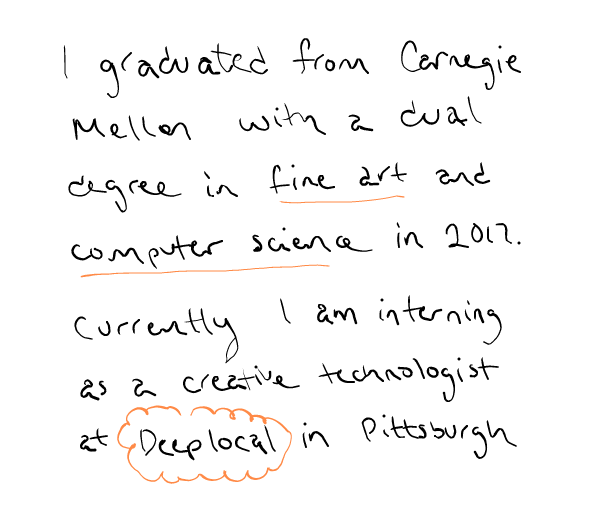 I graduated from Carnegie
Mellon with a dual
degree in fine art and
computer science in 2017.
Currently I am interning
as a creative technologist
at Deeplocal in Pittsburgh